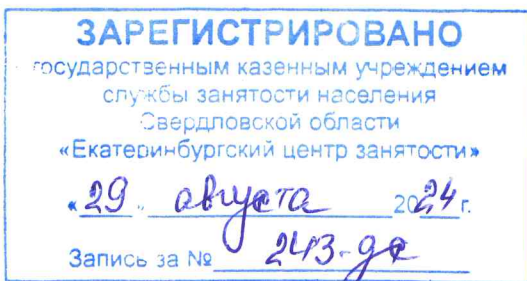 ЗАРЕГИСТРИРОВАНО
государственным казенным учреждением
службы занятости населения
Свердловской области
«Екатеринбургский центр занятости»
«29» августа 2024 г.
Запись за № 243-дс